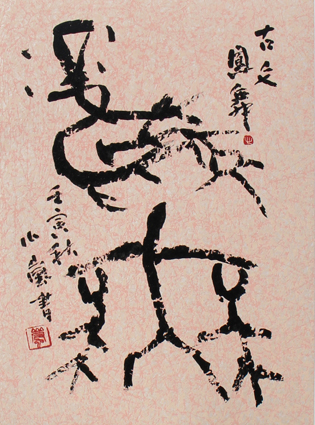 鳳舞
古文
鳳舞
壬寅秋
小 書